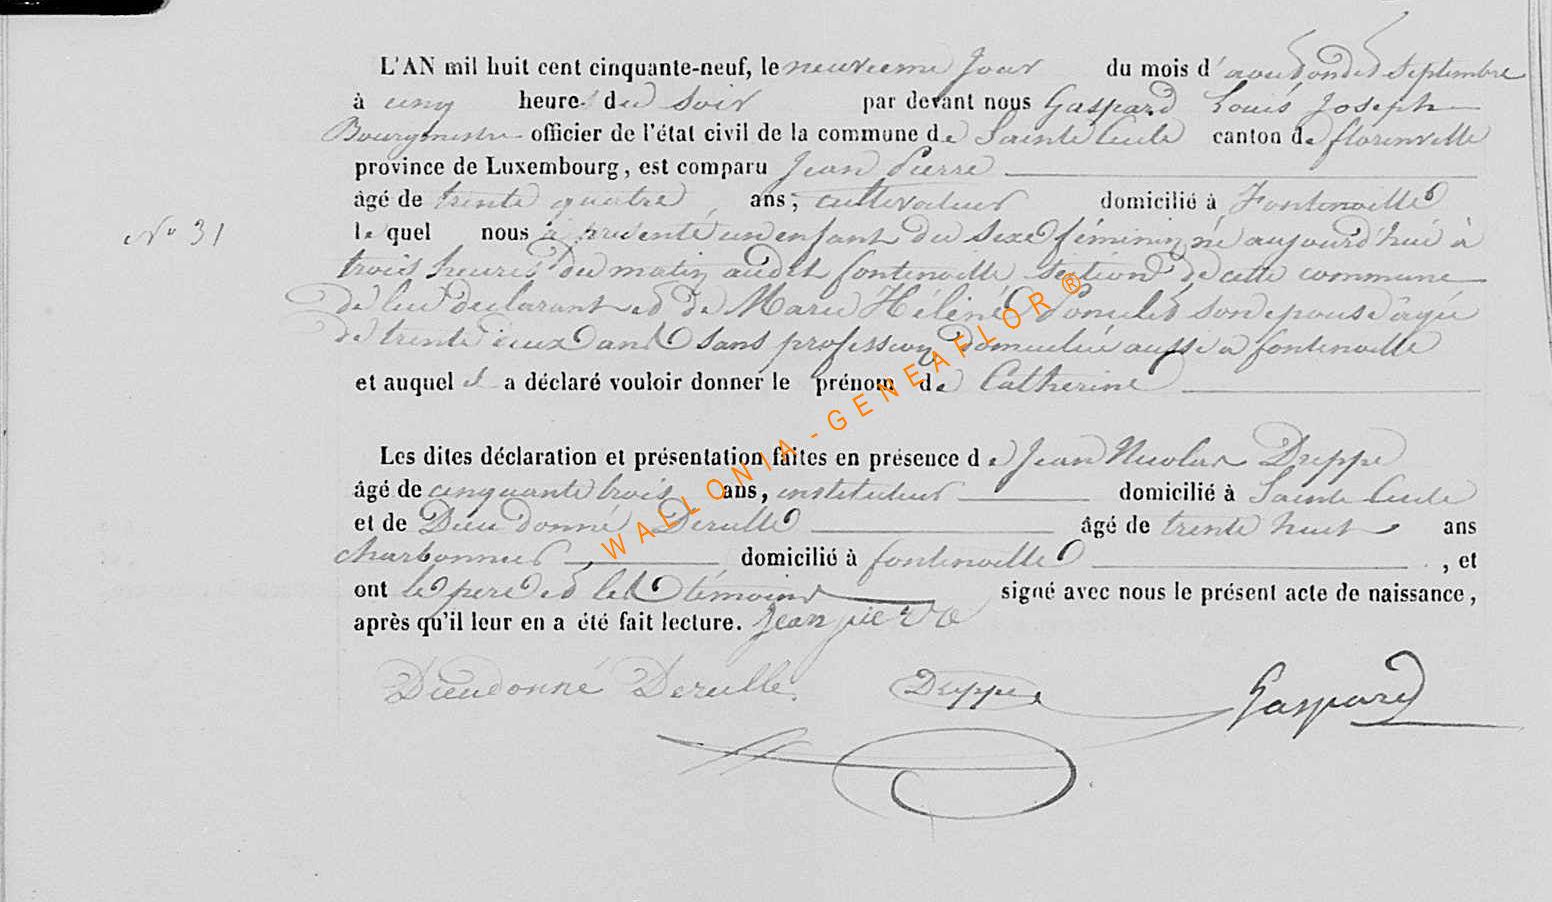 L'AN mil huit cent cinquante-neuf, le neuvieme jour du mois d' septembre
à cinq heures du soir par devant nous Gaspard Louis Joseph
Bourgmestre officier de l'état civil de la commune de Sainte Cecile canton de florenville
province de Luxembourg, est comparu Jean Pierre
âgé de trente quatre ans, cultivateur domicilié à Fontenoille
N° 31
lequel nous a présenté un enfant du sexe féminin, né aujourd'hui à
trois heures du matin audit fontenoille section de cette commune
de lui déclarant et de Marie Hélène son epouse agée
de trente deux ans sans profession domiciliée aussi a fontenoille
et auquel il a déclaré vouloir donner le prénom de Catherine
Les dites déclaration et présentation faites en présence de Jean Nicolas Dreppe
âgé de cinquante trois ans, instituteur domicilié à Sainte Cecile
et de Dieudonné Derulle âgé de trente huit ans
charbonnier domicilié à fontenoille, et
ont le pere et les témoins signé avec nous le présent acte de naissance,
après qu'il leur en a été fait lecture. jean pierre
Dieudonné Derulle. Dreppe Gaspard
WALLONIA-GENEAFLOR®